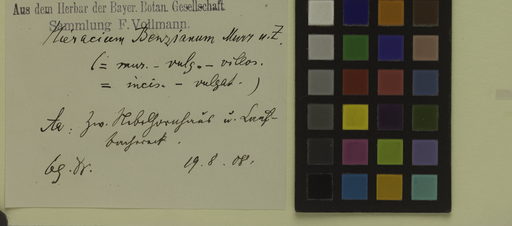 Aus dem Herbar der Bayer. Botan. Gesellschaft
Sammlung F. Vollmann.
Hieracium Benzianum Murr u. Z.
(= mur. - vulg. - villos.
= incis. - vulgat. )
Aa: Zw. Nebelhornhaus u. Lauf-
bachereck.
19. 8. 08.